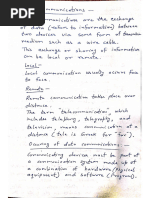 communications :-
communications are the exchange
of data (return by information) between
two devices via some form of transmission
medium such as a wire cable.
This exchange or sharing of information
can be local or remote.
Local :-
Local communication usually occurs face
to face.
Remote :-
Remote communication takes place over
distance.
The term "telecommunication", which
includes telephony, telegraphy, and
television, means communication at a
distance (tele is Greek for "far").
of data communications
Communicating devices must be part of
a communication system made up of
a combination of hardware (physical
equipment) and software (programs).